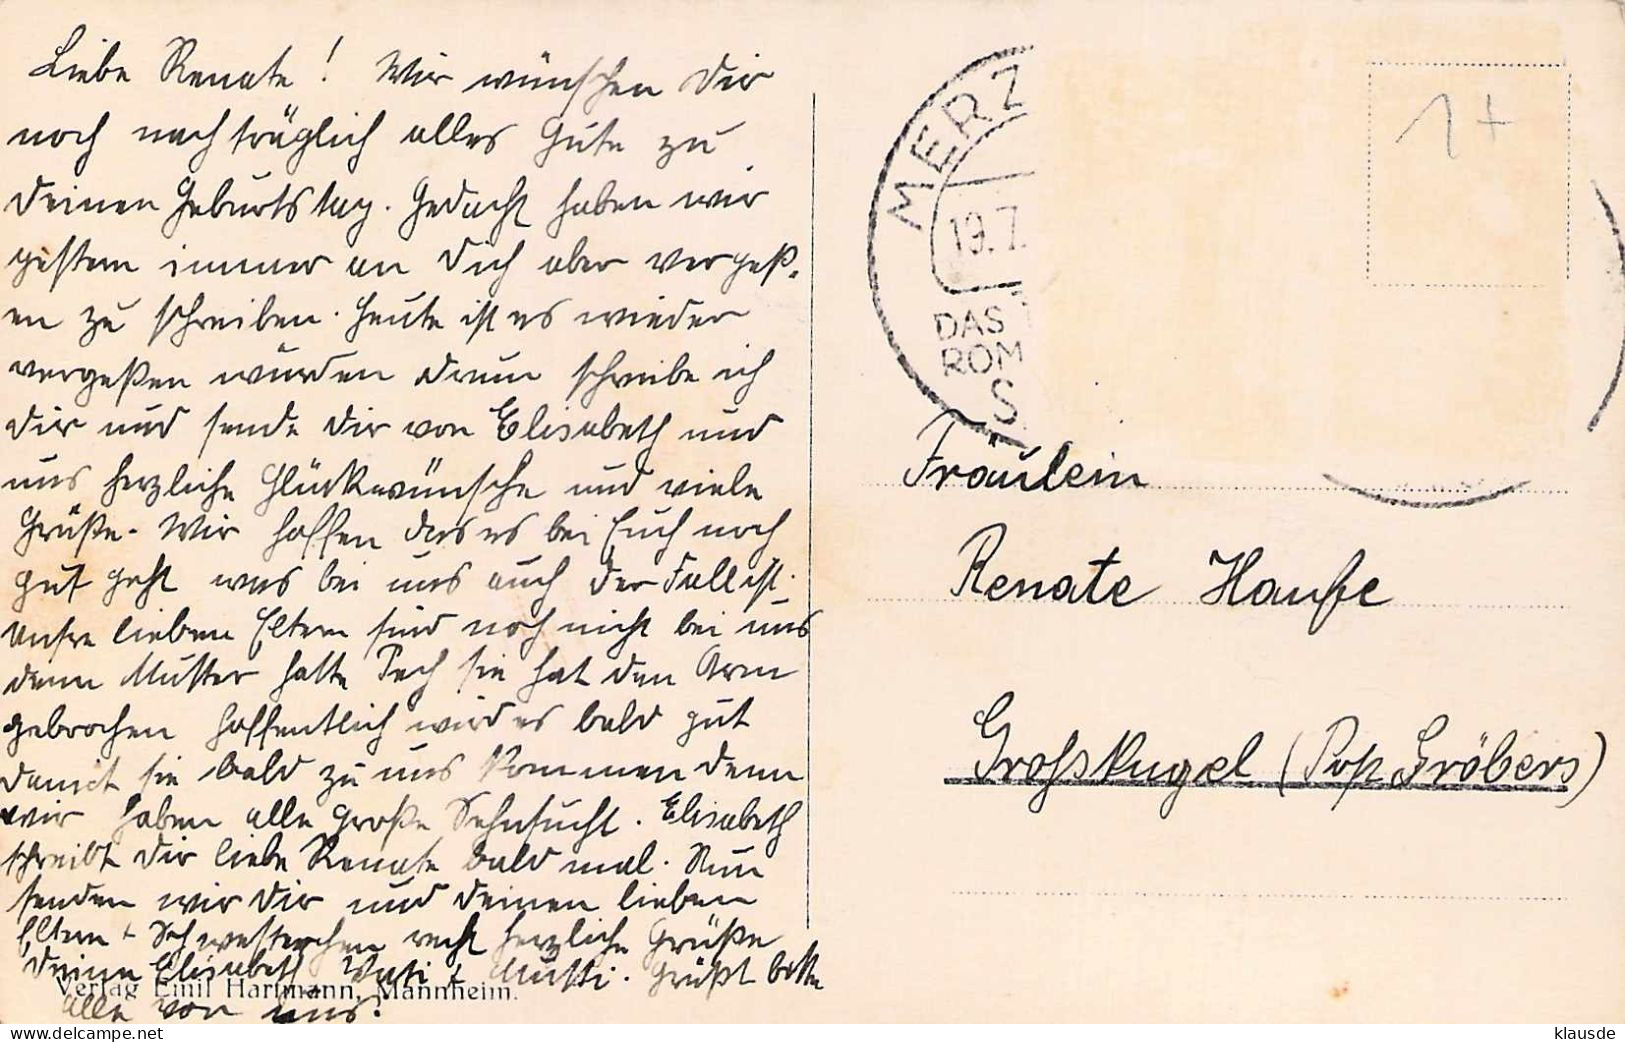 Liebe Renate! Wir wünschen Dir
noch nachträglich alles Gute zu
Deinen Geburtstag. Gedacht haben wir
gestern immer an Dich aber vergeß-
en zu schreiben. Heute ist es wieder
vergeßen würden drum schreibe ich
Dir und sende Dir von Elisabeth und
uns herzliche Glückwünsche und viele
Grüße. Wir hoffen das es bei Euch noch
gut geht was bei uns auch der Fall ist.
Unsre lieben Eltern sind noch nicht bei uns
denn Mutter hatte Pech sie hat den Arm
gebrochen hoffentlich wird es bald gut
damit sie bald zu uns kommen denn
wir haben alle große Sehnsucht. Elisabeth
schreibt Dir liebe Renate bald mal. Nun
senden wir Dir und Deinen lieben
Eltern + Schwesterchen recht herzliche Grüße
Deine Elisabeth Vati + Mutti. Grüßt bitte
alle von uns.
Verlag Emil Hartmann, Mannheim.
MERZ
19.7.
DAS
ROM
S
1+
Fräulein
Renate Haufe
Grosskugel (Post Gröbers)
klausde